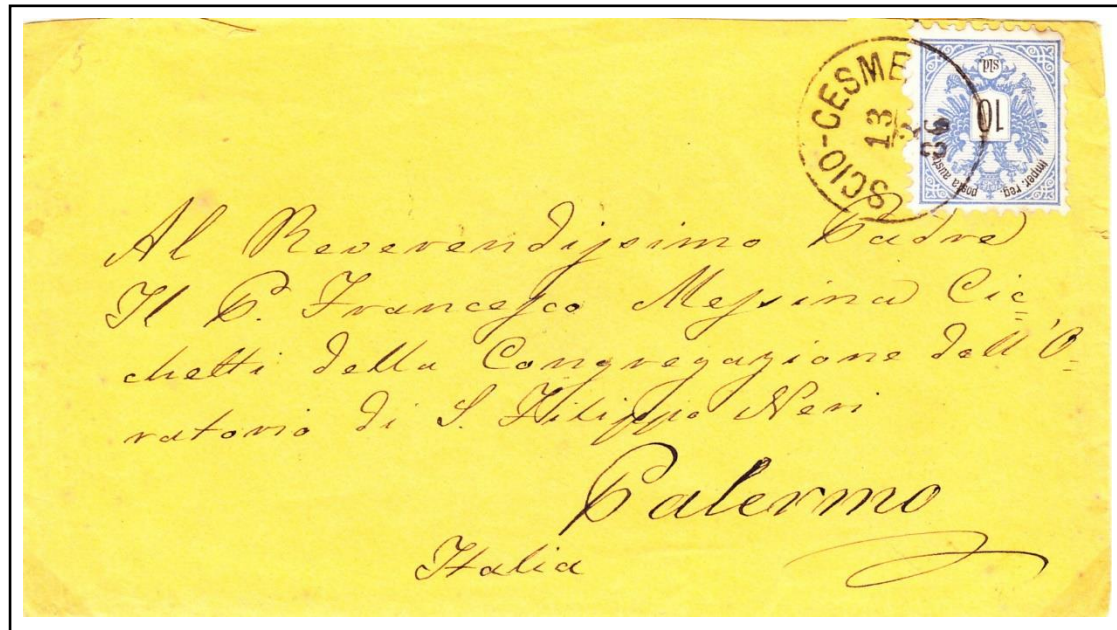 5
SCIO-CESME
13
10
sld
Imper. reg. posta austr.
Al Reverendissimo Padre
Il P. Francesco Messina Cic=
chetti della Congregazione dell'O=
ratorio di S. Filippo Neri
Palermo
Italia